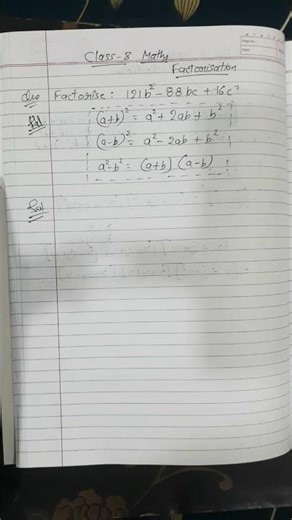 Class-8 Maths
Factorisation
Que Factorise: 121b² - 88bc + 16c²
(a+b)² = a² + 2ab + b²
(a-b)² = a² - 2ab + b²
a²-b² = (a+b) (a-b)
Sol